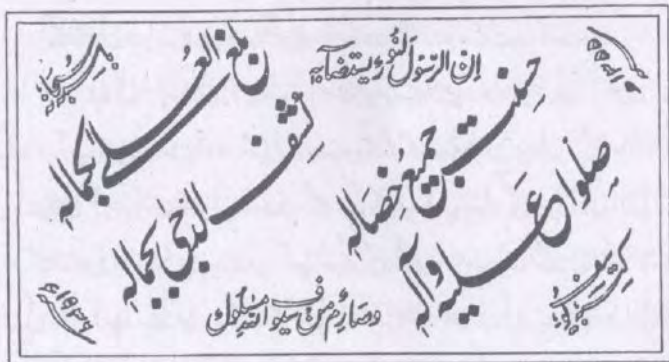 ان الرسول لنور يستضاء به
بلغ العلى بكماله
كشف الدجى بجماله
حسنت جميع خصاله
صلوا عليه وآله
وصارم من سيوف الله مسلول